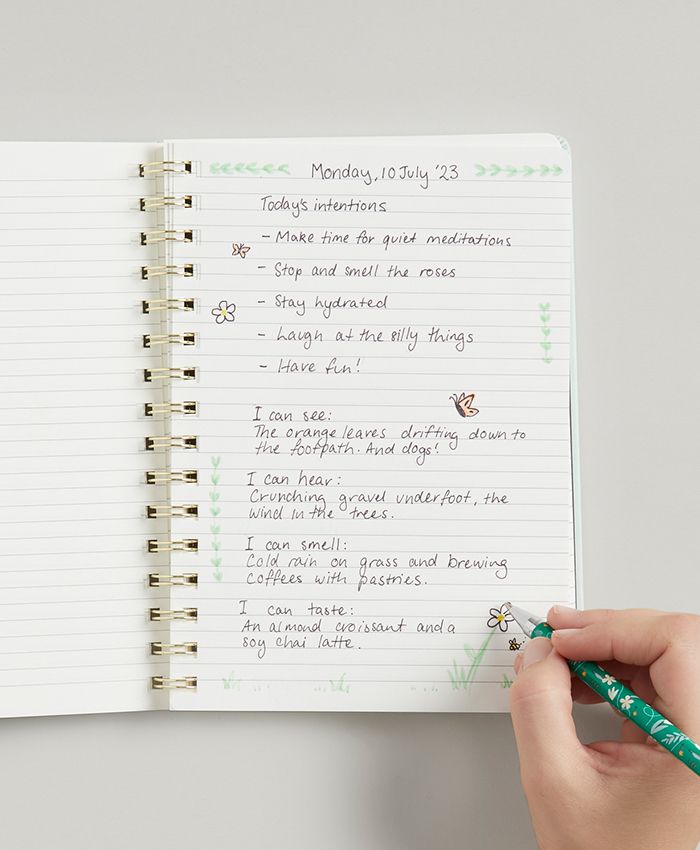 Monday, 10 July '23
Today's intentions
- Make time for quiet meditations
- Stop and smell the roses
- Stay hydrated
- Laugh at the silly things
- Have fun!
I can see:
The orange leaves drifting down to
the footpath. And dogs!
I can hear:
Crunching gravel underfoot, the
wind in the trees.
I can smell:
Cold rain on grass and brewing
coffees with pastries.
I can taste:
An almond croissant and a
soy chai latte.